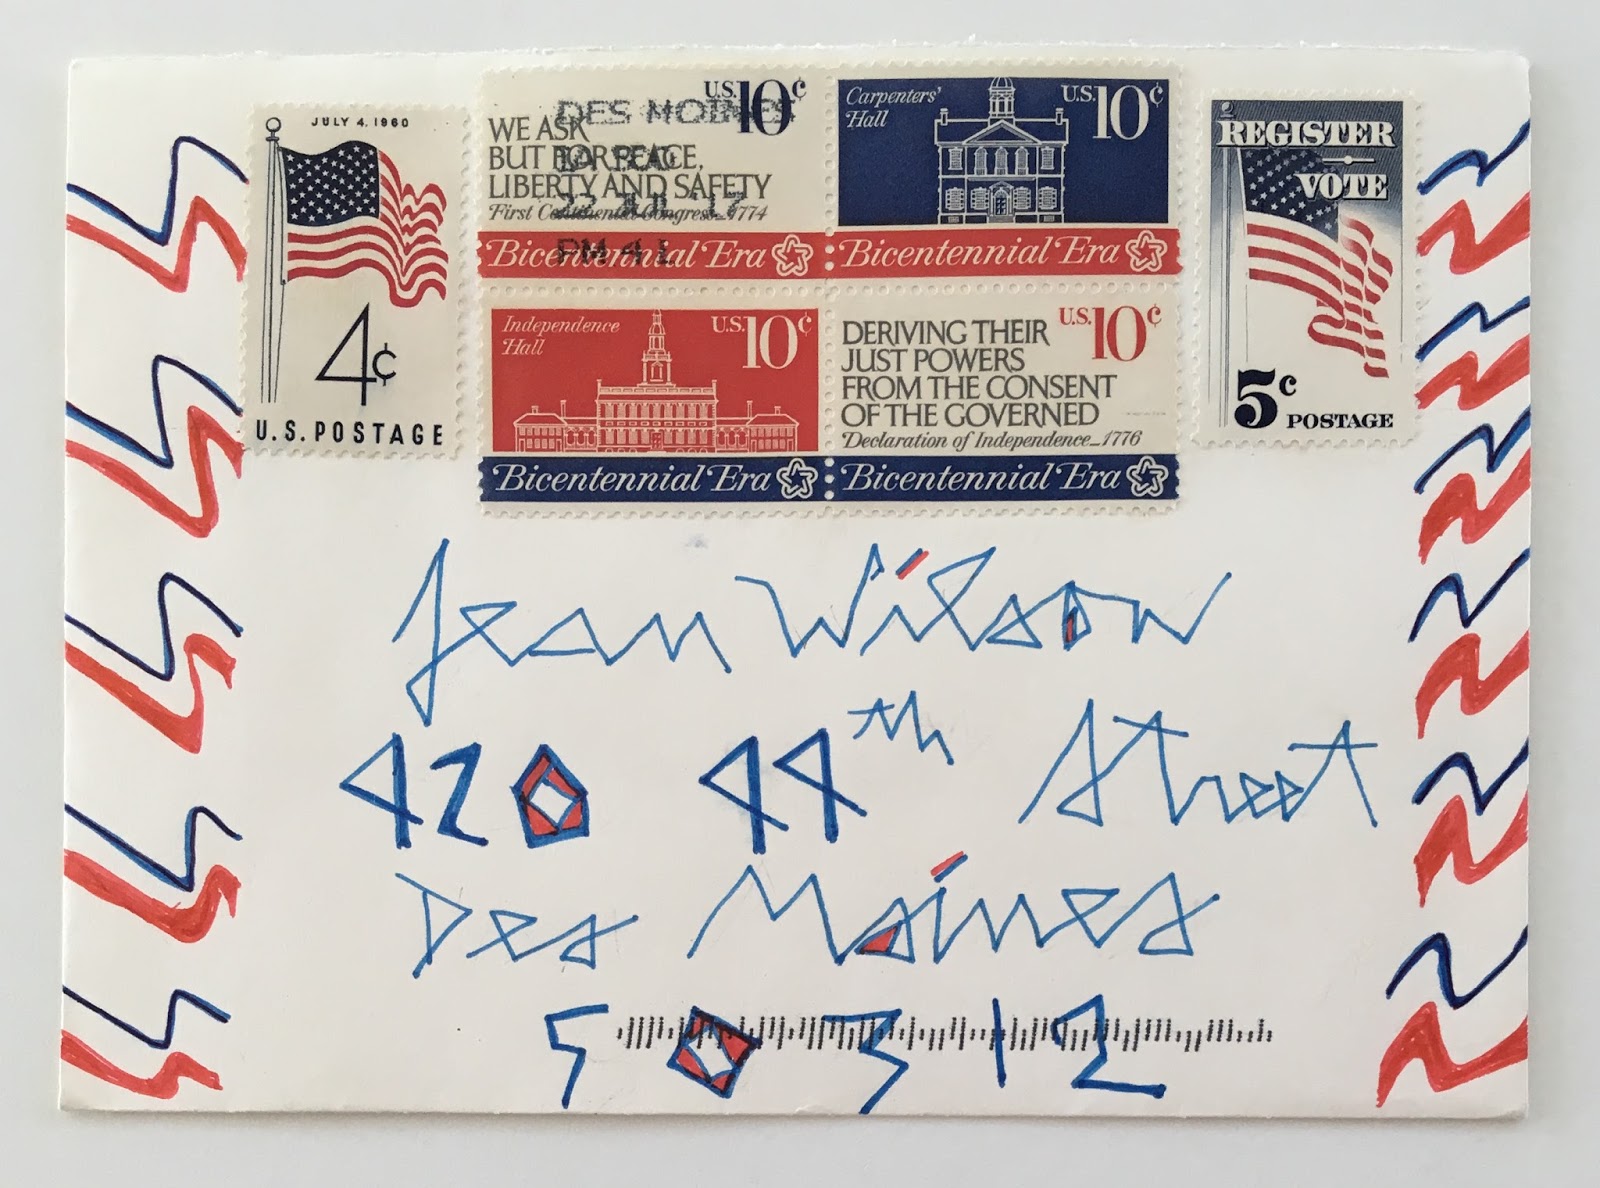 JULY 4, 1960
4¢
U.S. POSTAGE
U.S. 10¢
WE ASK
BUT FOR PEACE,
LIBERTY AND SAFETY
First Continental Congress_1774
Bicentennial Era
DES MOINES
PM 4 L
Carpenters'
Hall
U.S. 10¢
Bicentennial Era
Independence
Hall
U.S. 10¢
Bicentennial Era
U.S. 10¢
DERIVING THEIR
JUST POWERS
FROM THE CONSENT
OF THE GOVERNED
Declaration of Independence_1776
Bicentennial Era
REGISTER
VOTE
5¢ POSTAGE
Jean Wilson
420 44th Street
Des Moines
50312